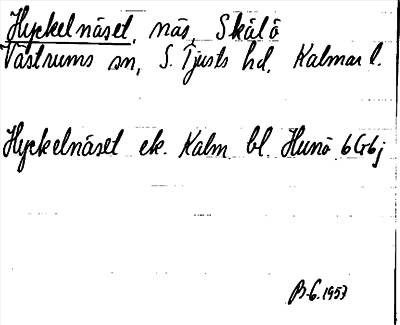 Hyckelnäset, näs, Skälö
Västrums sn, S. Tjusts hd, Kalmar l.
Hyckelnäset ek. Kalm. bl. Hunö 6G6j
B-G. 1953